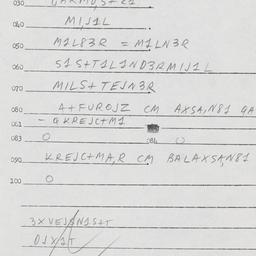 030
040 MI,J1L
050 M1L83R = M1LN3R
060 S1S+T1L1ND3RMIJ1L
070 MILS+TEJN3R
080 A+FUROJZ CM AXSA,N81 GA
081 - GKREJC+M1
083 0 084 0
090 KREJC+MA,R CM BALAXSA,N81
100 0
3XVEJ,N1S+T